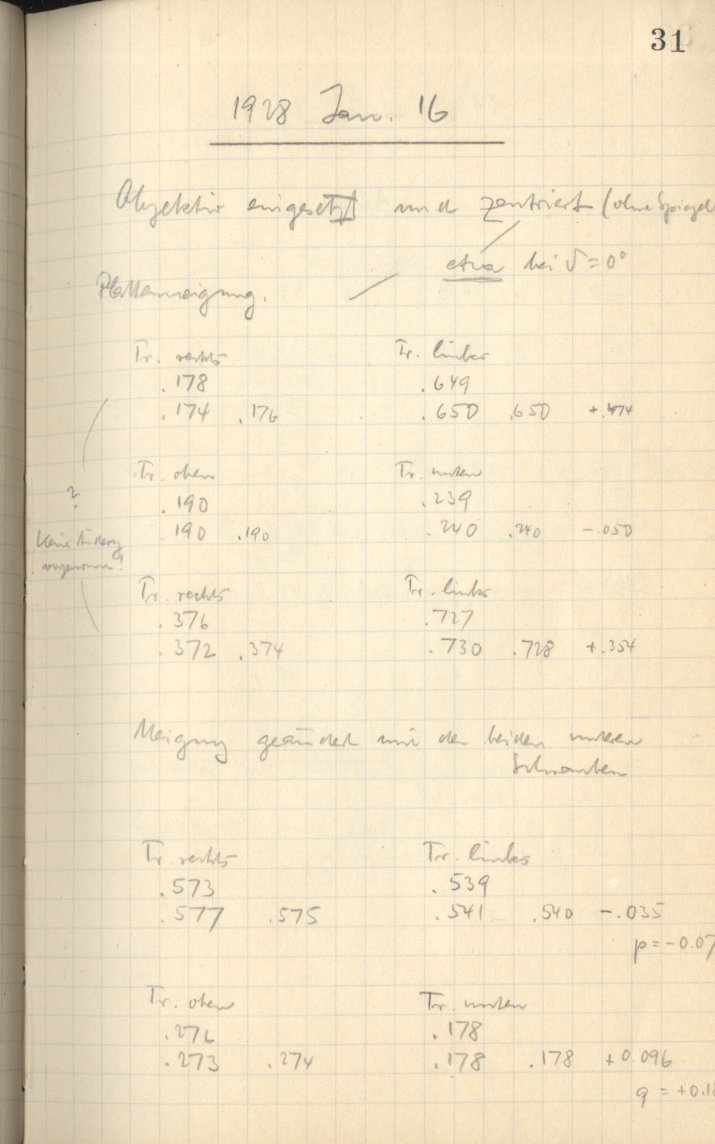 31
1928 Jan. 16
Objektiv eingesetzt und zentriert (ohne Spiegel
etwa bei δ=0°
Plattenneigung.
Tr. rechts Tr. links
.178 .649
.174 .176 .650 .650 +.474
Tr. oben Tr. unten
.190 .239
?
.190 .190 .240 .240 -.050
keine Änderung
vorgenommen?
Tr. rechts Tr. links
.376 .727
.372 .374 .730 .728 +.354
Neigung geändert mit den beiden unteren
Schrauben
Tr. rechts Tr. links
.573 .539
.577 .575 .541 .540 -.035
p=-0.07
Tr. oben Tr. unten
.276 .178
.273 .274 .178 .178 +0.096
q = +0.1